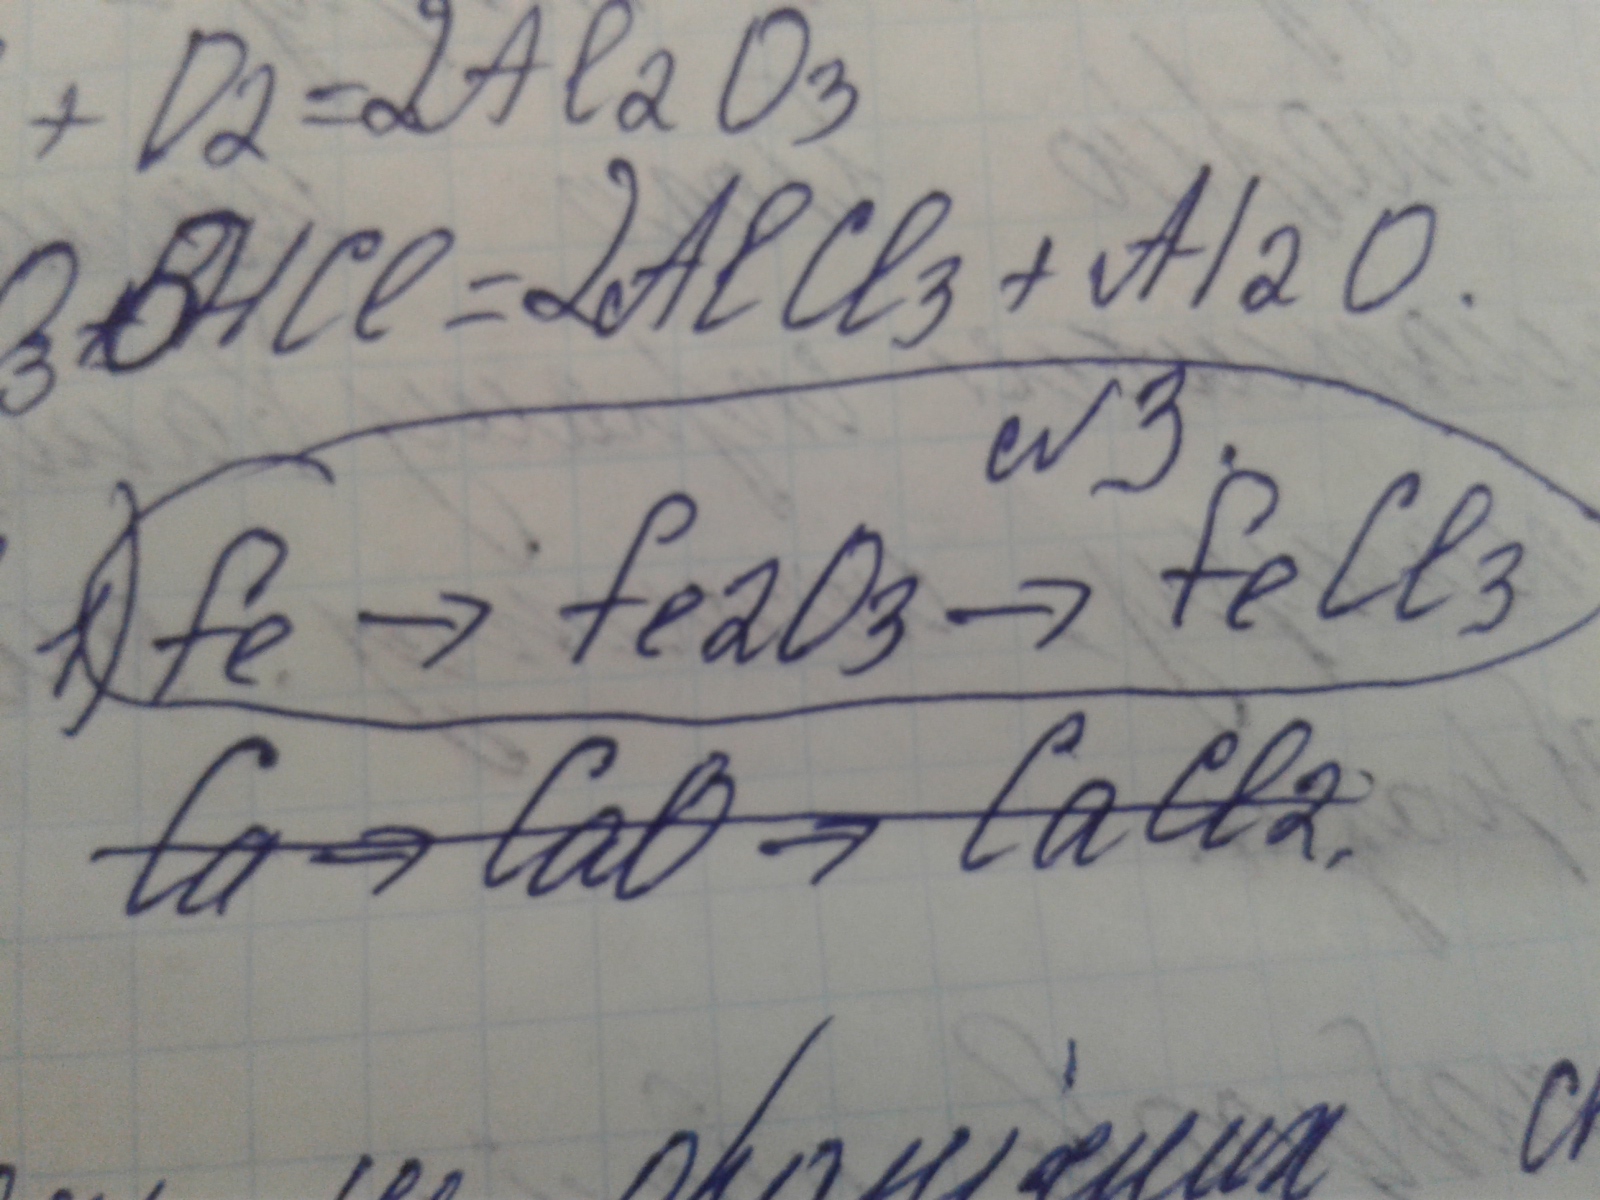 + O2 = 2Al2O3
3 + 6HCl = 2AlCl3 + Al2O.
№3.
1) Fe → Fe2O3 → FeCl3
Ca → CaO → CaCl2.